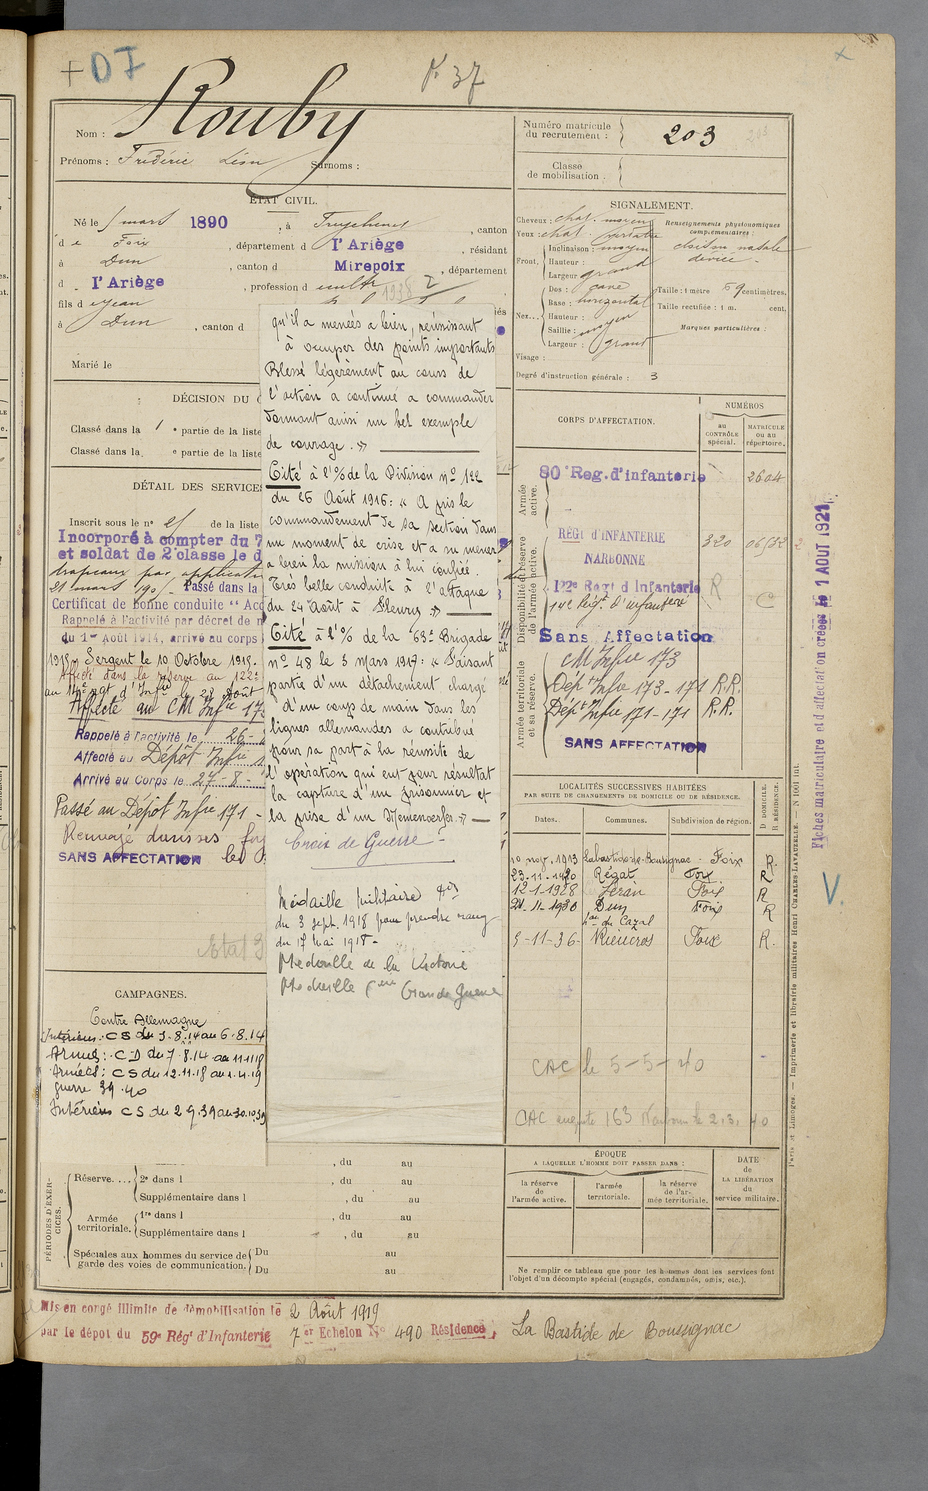 + D7
37
Nom : Rouby
Prénoms : Frédéric Léon Surnoms :
ÉTAT CIVIL.
Né le 1 mars 1890, à , canton
d e Foix , département d l'Ariège , résidant
à Dun , canton d Mirepoix , département
d l'Ariège , profession d
fils d e Jean
à Dun , canton d
Marié le
DÉCISION DU
Classé dans la 1 e partie de la liste
Classé dans la e partie de la liste
DÉTAIL DES SERVICES
Inscrit sous le n° de la liste
Incorporé à compter du 7
et soldat de 2e classe le d
drapeaux par
21 mars Passé dans la
Certificat de bonne conduite "Acc
Rappelé à l'activité par décret de m
du 1er Août 1914, arrivé au corps
1915 - Sergent le 10 Octobre 1915.
Affecté dans la réserve au 122e
au d'Infie le 28 Août
Affecté au CM Infie 173
Rappelé à l'activité le 26-
Affecté au Dépôt Infie 1
Arrivé au Corps le 27-8-
Passé au Dépôt Infie 171 -
Renvoyé dans ses foy
SANS AFFECTATION le
qu'il a menées a bien, réussissant
à occuper des points importants
Blessé légèrement au cours de
l'action a continué a commander
donnant ainsi un bel exemple
de courage. »
Cité à l'% de la Division n° 122
du 26 Août 1916 : « A pris le
commandement de sa section dans
un moment de crise et a su mener
a bien la mission à lui confiée.
Très belle conduite à l'attaque
du 24 Août à Fleury »
Cité à l'% de la 63e Brigade
n° 48 le 3 mars 1917 : « Faisant
partie d'un détachement chargé
d'un coup de main dans les
lignes allemandes a contribué
pour sa part à la réussite de
l'opération qui eut pour résultat
la capture d'un prisonnier et
la prise d'un Minenwerfer. »
Croix de Guerre -
Médaille Militaire
du 3 sept. 1918 pour prendre rang
du 17 Mai 1918 -
Médaille de la Victoire
Médaille Grande Guerre
CAMPAGNES.
Contre Allemagne
Intérieur : CS du 3.8.14 au 6.8.14
Armées : CD du 7.8.14 au 11.11.18
Armées : CS du 12.11.18 au 1.4.19
guerre 39-40
Intérieur CS du 2.9.39 au 30.10.39
PÉRIODES D'EXERCICES.
, du au
Réserve.... 2e dans l , du au
Supplémentaire dans l , du au
Armée territoriale. 1re dans l , du au
Supplémentaire dans l , du au
Spéciales aux hommes du service de garde des voies de communication. Du au
Du au
Mis en congé illimité de démobilisation le 2 Août 1919
par le dépôt du 59e Rég t d'Infanterie 7 er Echelon N° 490 Résidence, La Bastide de Bousignac
Numéro matricule du recrutement : 203
Classe de mobilisation :
SIGNALEMENT.
Cheveux : chat. moyen
Yeux : chat.
Front, Inclinaison : moyen
Hauteur :
Largeur : grand
Nez... Dos : cave
Base : horizontal
Hauteur :
Saillie : moyen
Largeur : grand
Visage :
Renseignements physionomiques complémentaires :
cloison nasale
déviée -
Taille : 1 mètre 69 centimètres.
Taille rectifiée : 1 m. cent.
Marques particulières :
Degré d'instruction générale : 3
CORPS D'AFFECTATION.
NUMÉROS
au CONTRÔLE spécial.
MATRICULE ou au répertoire.
Armée active.
80e Reg. d'infanterie 2604
Disponibilité et réserve de l'armée active.
REGt d'INFANTERIE 320
NARBONNE
122e Regt d'Infanterie R
Rég. d'infanterie C
Sans Affectation
Armée territoriale et sa réserve.
CM Infie 173
Dépt Infie 173 - 171 R.R.
Dépt Infie 171 - 171 R.R.
SANS AFFECTATION
LOCALITÉS SUCCESSIVES HABITÉES
PAR SUITE DE CHANGEMENTS DE DOMICILE OU DE RÉSIDENCE.
Dates. Communes. Subdivision de région. D DOMICILE. R RÉSIDENCE.
10 nov. 1913 Labastide-de-Bousignac - Foix R.
23-11-1920 Régat Foix R
12-1-1928 Léran Foix R
24-11-1930 Dun Foix R
du Cazal
5-11-36 - Rieucros Foix R.
CAC le 5-5-40
CAC 163 2.3.40
ÉPOQUE
A LAQUELLE L'HOMME DOIT PASSER DANS :
la réserve de l'armée active.
l'armée territoriale.
la réserve de l'armée territoriale.
DATE de LA LIBÉRATION du service militaire.
Ne remplir ce tableau que pour les hommes dont les services font
l'objet d'un décompte spécial (engagés, condamnés, omis, etc.).
Fiches matriculaire et d'affectation créées le 1 AOUT 1921
V.
Paris et Limoges. — Imprimerie et librairie militaires Henri CHARLES-LAVAUZELLE.